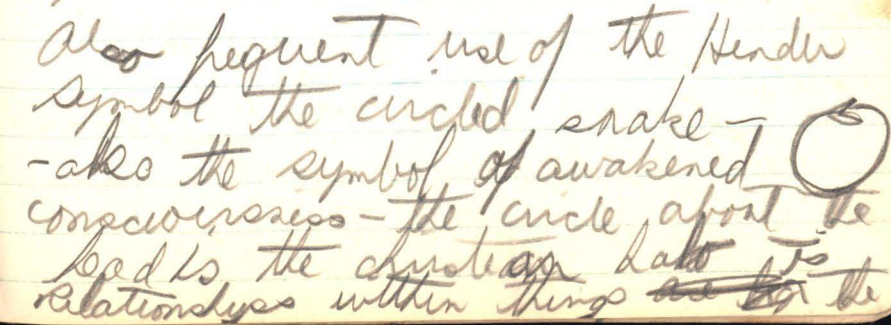 Also frequent use of the Hindu
symbol the circled snake –
– also the symbol of awakened
consciousness – the circle about the
head is the christian halo is
relationships within things the